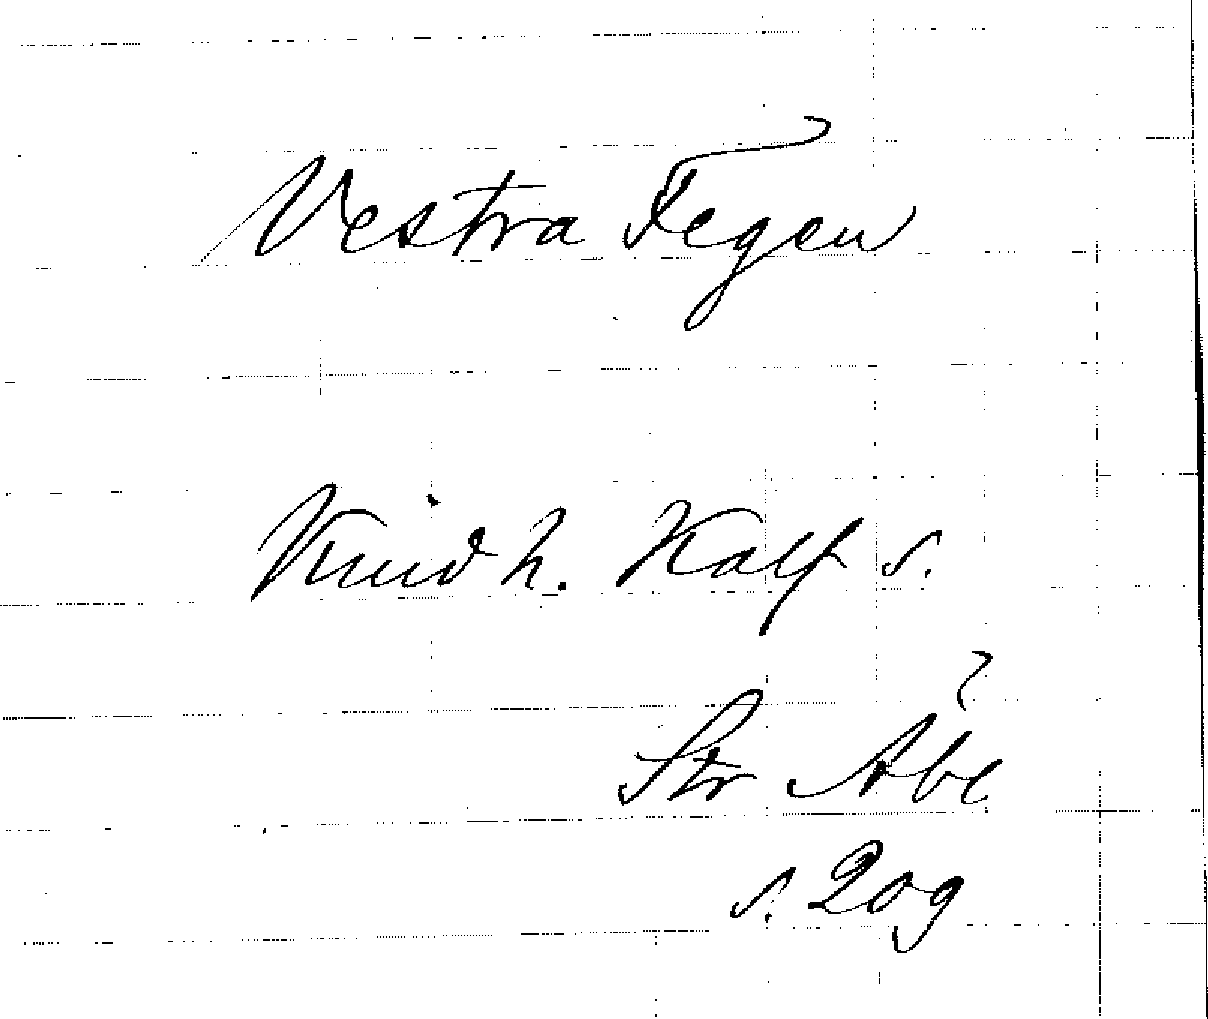 Vestra Tegen
Knud h. Kalf s.
Str Åbe
s. 209